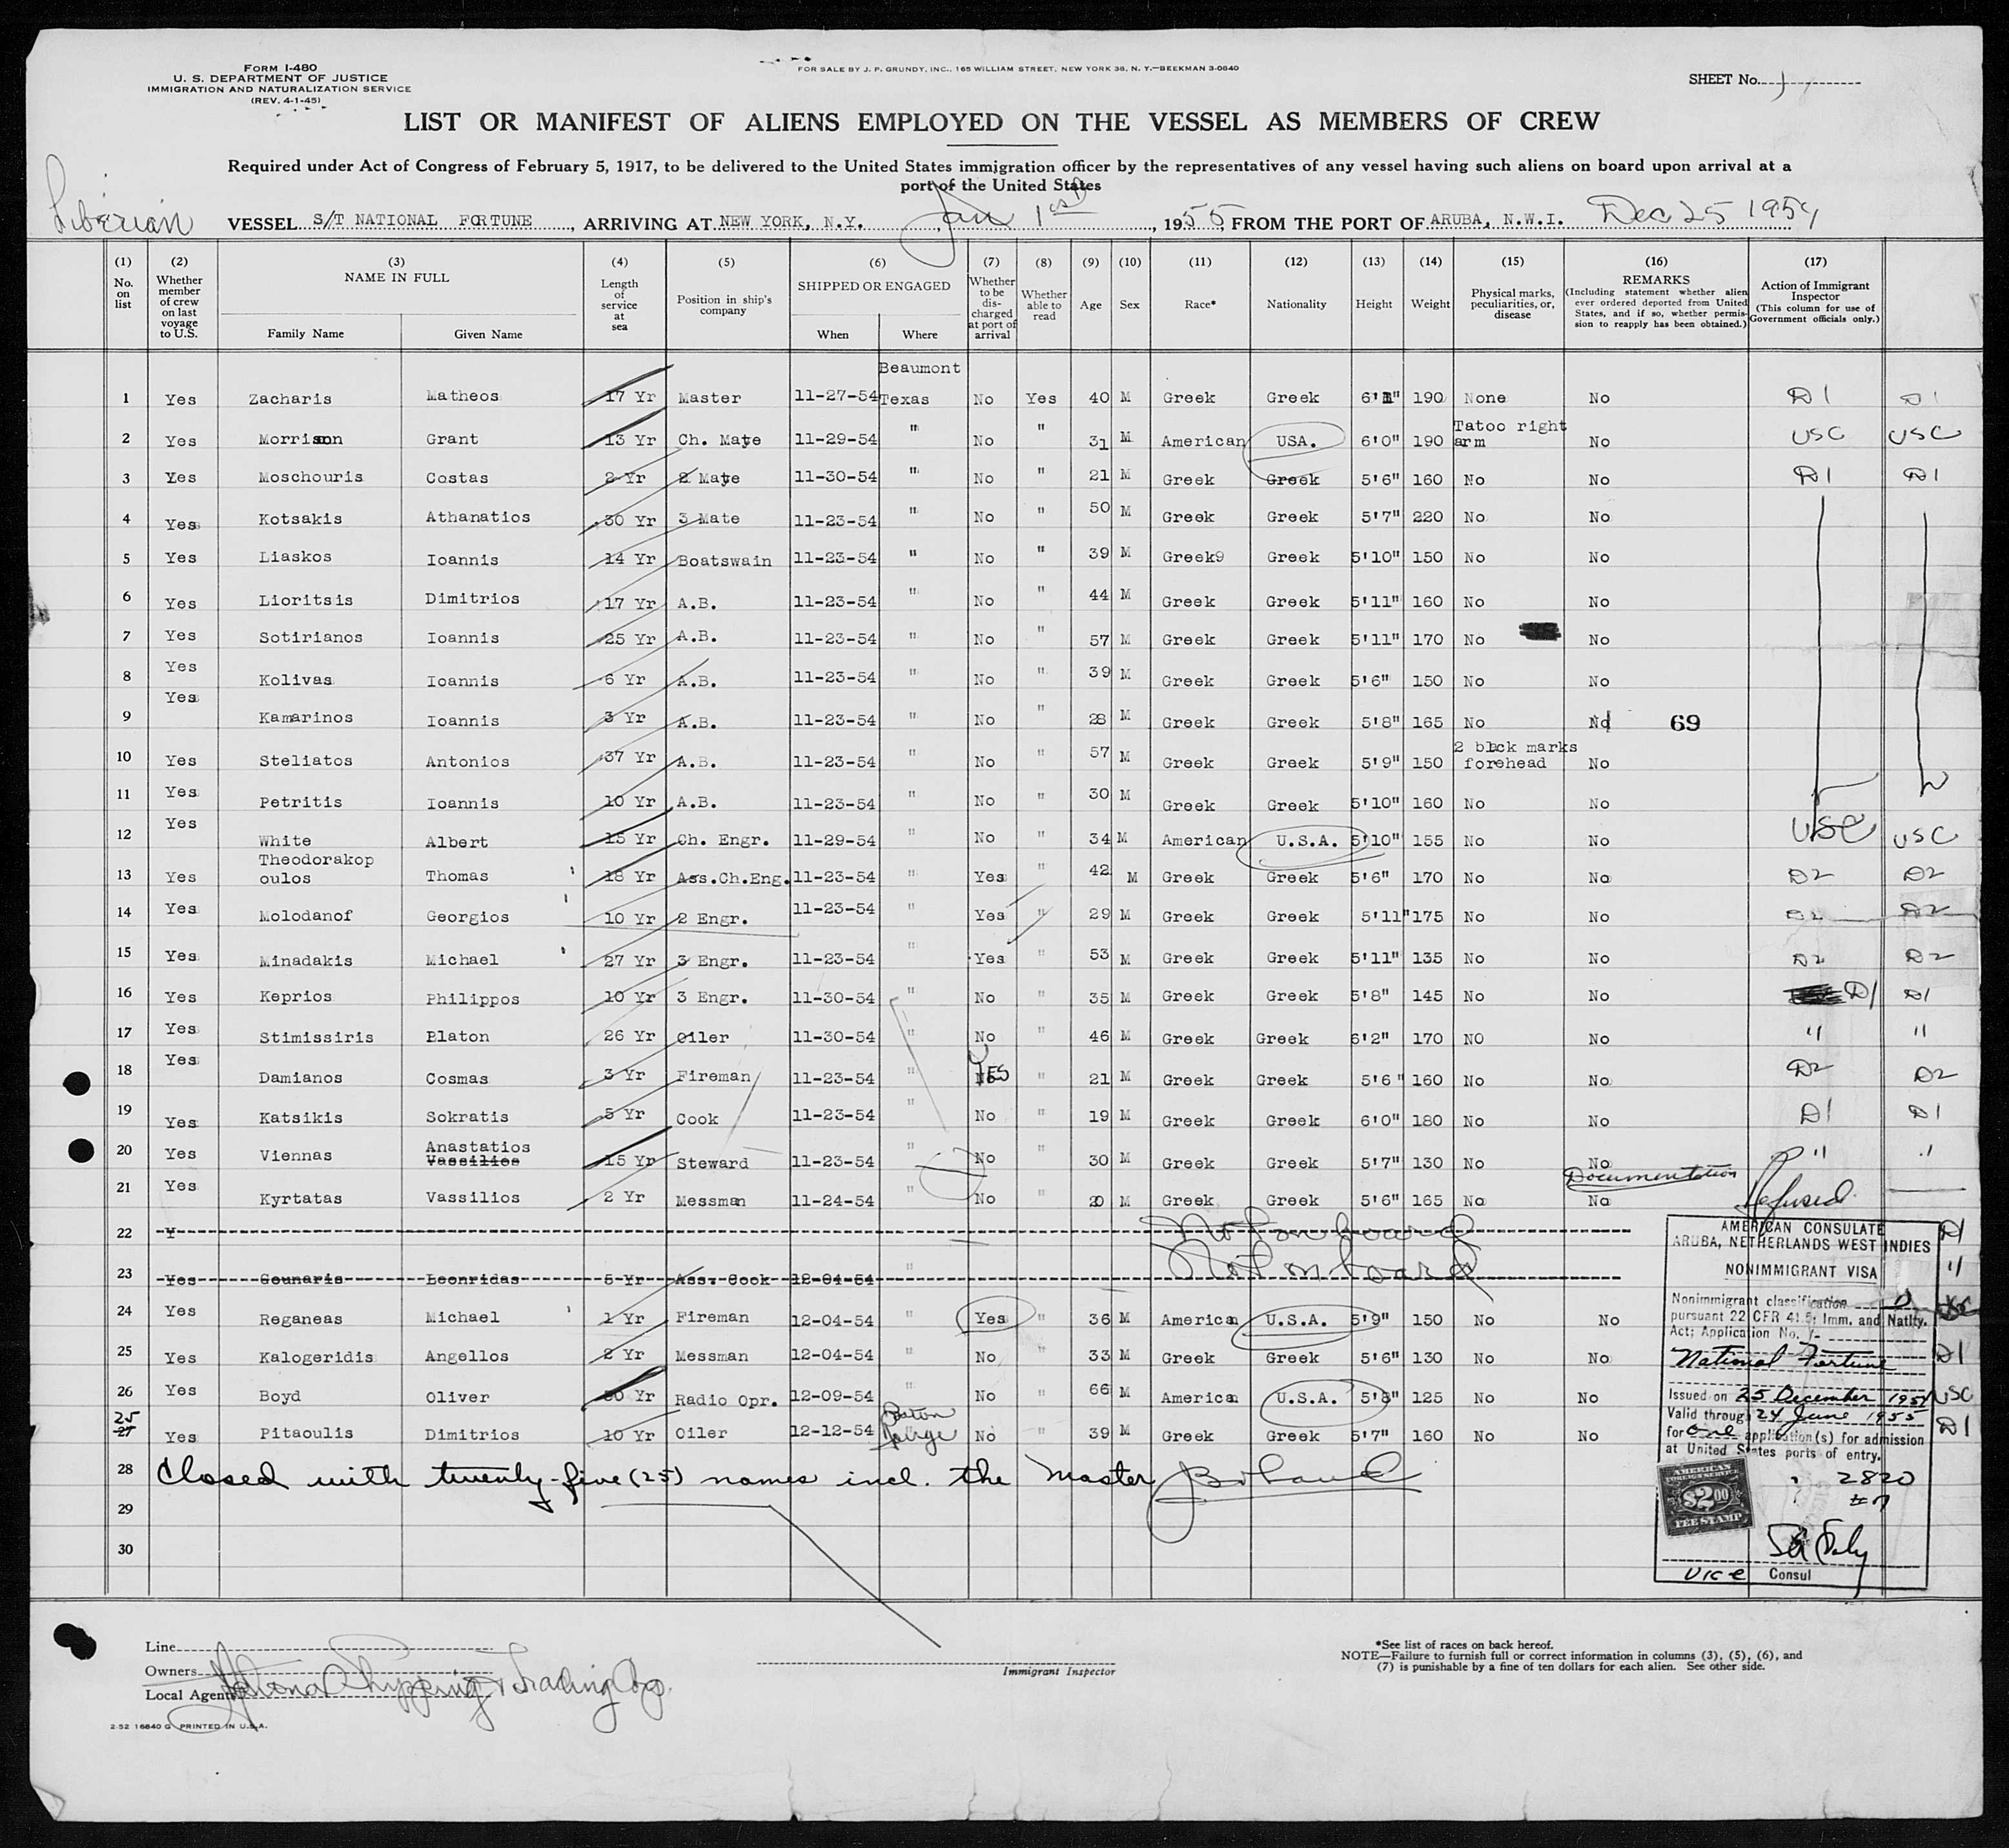 FORM I-480
U. S. DEPARTMENT OF JUSTICE
IMMIGRATION AND NATURALIZATION SERVICE
(REV. 4-1-45)
FOR SALE BY J. P. GRUNDY, INC., 165 WILLIAM STREET, NEW YORK 38, N. Y.—BEEKMAN 3-0840
SHEET No. 1
LIST OR MANIFEST OF ALIENS EMPLOYED ON THE VESSEL AS MEMBERS OF CREW
Required under Act of Congress of February 5, 1917, to be delivered to the United States immigration officer by the representatives of any vessel having such aliens on board upon arrival at a
port of the United States
Liberian VESSEL S/T NATIONAL FORTUNE, ARRIVING AT NEW YORK, N.Y. Jan 1st, 1955, FROM THE PORT OF ARUBA, N.W.I. Dec 25 1954
(1) No. on list
(2) Whether member of crew on last voyage to U.S.
(3) NAME IN FULL
Family Name
Given Name
(4) Length of service at sea
(5) Position in ship's company
(6) SHIPPED OR ENGAGED
When
Where
(7) Whether to be discharged at port of arrival
(8) Whether able to read
(9) Age
(10) Sex
(11) Race*
(12) Nationality
(13) Height
(14) Weight
(15) Physical marks, peculiarities, or, disease
(16) REMARKS
(Including statement whether alien ever ordered deported from United States, and if so, whether permission to reapply has been obtained.)
(17) Action of Immigrant Inspector
(This column for use of Government officials only.)
1 Yes Zacharis Matheos 17 Yr Master 11-27-54 Beaumont Texas No Yes 40 M Greek Greek 6'1" 190 None No D1 D1
2 Yes Morrison Grant 13 Yr Ch. Mate 11-29-54 " No " 31 M American USA. 6'0" 190 Tatoo right arm No USC USC
3 Yes Moschouris Costas 2 Yr 2 Mate 11-30-54 " No " 21 M Greek Greek 5'6" 160 No No D1 D1
4 Yes Kotsakis Athanatios 30 Yr 3 Mate 11-23-54 " No " 50 M Greek Greek 5'7" 220 No No
5 Yes Liaskos Ioannis 14 Yr Boatswain 11-23-54 " No " 39 M Greek9 Greek 5'10" 150 No No
6 Yes Lioritsis Dimitrios 17 Yr A.B. 11-23-54 " No " 44 M Greek Greek 5'11" 160 No No
7 Yes Sotirianos Ioannis 25 Yr A.B. 11-23-54 " No " 57 M Greek Greek 5'11" 170 No No
8 Yes Kolivas Ioannis 6 Yr A.B. 11-23-54 " No " 39 M Greek Greek 5'6" 150 No No
9 Yes Kamarinos Ioannis 3 Yr A.B. 11-23-54 " No " 28 M Greek Greek 5'8" 165 No No 69
10 Yes Steliatos Antonios 37 Yr A.B. 11-23-54 " No " 57 M Greek Greek 5'9" 150 2 black marks forehead No
11 Yes Petritis Ioannis 10 Yr A.B. 11-23-54 " No " 30 M Greek Greek 5'10" 160 No No
12 Yes White Albert 15 Yr Ch. Engr. 11-29-54 " No 34 M American U.S.A. 5'10" 155 No No USC USC
13 Yes Theodorakop oulos Thomas 18 Yr Ass.Ch.Eng. 11-23-54 " Yes 42 M Greek Greek 5'6" 170 No No D2 D2
14 Yes Molodanof Georgios 10 Yr 2 Engr. 11-23-54 " Yes " 29 M Greek Greek 5'11" 175 No No D2 D2
15 Yes Minadakis Michael 27 Yr 3 Engr. 11-23-54 " Yes " 53 M Greek Greek 5'11" 135 No No D2 D2
16 Yes Keprios Philippos 10 Yr 3 Engr. 11-30-54 " No " 35 M Greek Greek 5'8" 145 No No D1 D1
17 Yes Stimissiris Platon 26 Yr Oiler 11-30-54 " No " 46 M Greek Greek 6'2" 170 NO No " "
18 Yes Damianos Cosmas 3 Yr Fireman 11-23-54 " YES " 21 M Greek Greek 5'6" 160 No No D2 D2
19 Yes Katsikis Sokratis 5 Yr Cook 11-23-54 " No " 19 M Greek Greek 6'0" 180 No No D1 D1
20 Yes Viennas Anastatios Vassilios 15 Yr Steward 11-23-54 " No " 30 M Greek Greek 5'7" 130 No No " "
21 Yes Kyrtatas Vassilios 2 Yr Messman 11-24-54 " No M Greek Greek 5'6" 165 No No Documentation Refused
22 Y Not on board D1
23 Yes Gounaris Leonridas 5 Yr Ass. Cook 12-04-54 " Not on board "
24 Yes Reganeas Michael 1 Yr Fireman 12-04-54 " Yes " 36 M American U.S.A. 5'9" 150 No No
25 Yes Kalogeridis Angellos 2 Yr Messman 12-04-54 " No " 33 M Greek Greek 5'6" 130 No No D1
26 Yes Boyd Oliver 30 Yr Radio Opr. 12-09-54 " No 66 M American U.S.A. 5'8" 125 No No USC
25 27 Yes Pitaoulis Dimitrios 10 Yr Oiler 12-12-54 Baton Rouge No " 39 M Greek Greek 5'7" 160 No No D1
28 Closed with twenty-five (25) names incl. the Master
29
30
AMERICAN CONSULATE
ARUBA, NETHERLANDS WEST INDIES
NONIMMIGRANT VISA
Nonimmigrant classification D
pursuant 22 CFR 41.5; Imm. and Natlty.
Act; Application No.
National Fortune
Issued on 25 December 1954
Valid through 24 June 1955
for one application(s) for admission
at United States ports of entry.
2820
#7
AMERICAN
FOREIGN SERVICE
$2.00
FEE STAMP
Vice Consul
Line
Owners
Local Agents National Shipping & Trading Corp.
Immigrant Inspector
*See list of races on back hereof.
NOTE—Failure to furnish full or correct information in columns (3), (5), (6), and
(7) is punishable by a fine of ten dollars for each alien. See other side.
2-52 16840 G PRINTED IN U.S.A.